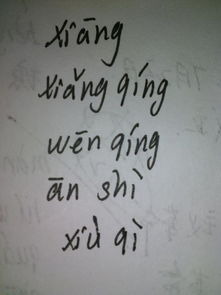 xiāng
xiǎng qíng
wēn qíng
ān shì
xiù qì